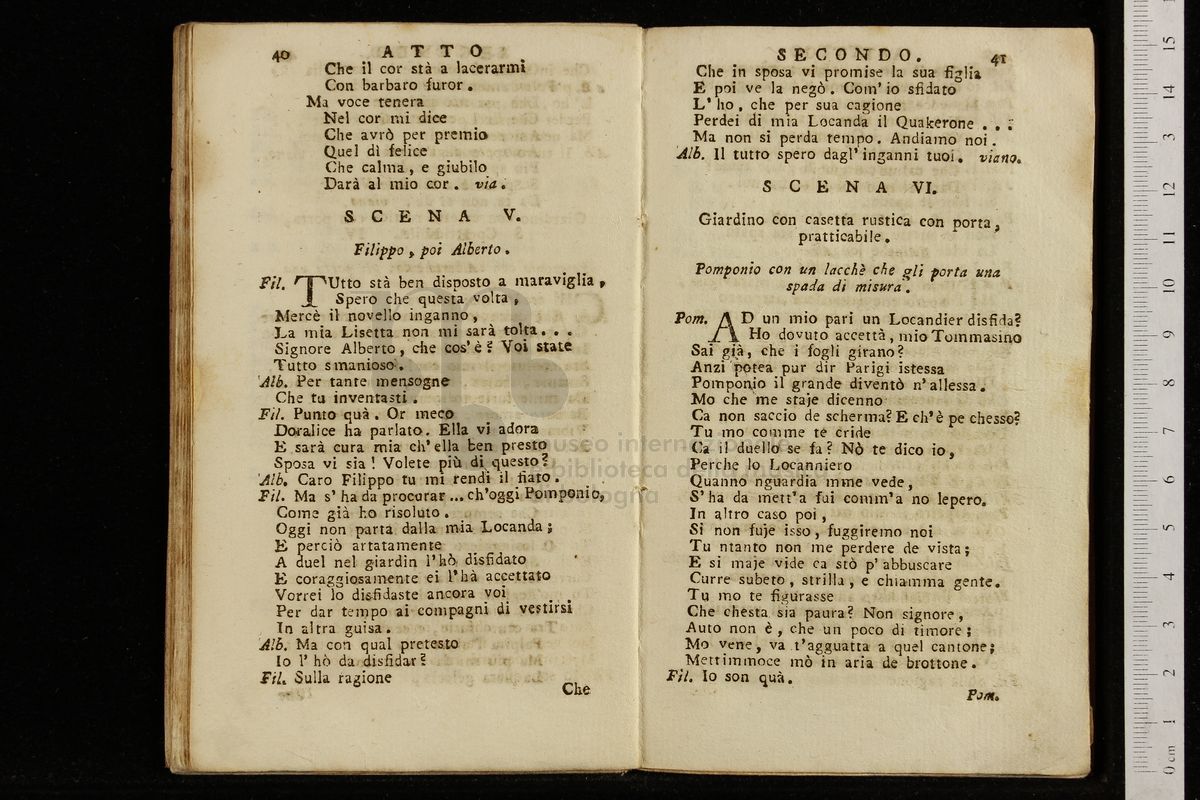 40 ATTO
Che il cor stà a lacerarmi
Con barbaro furor.
Ma voce tenera
Nel cor mi dice
Che avrò per premio
Quel dì felice
Che calma, e giubilo
Darà al mio cor. via.
SCENA V.
Filippo, poi Alberto.
Fil. TUtto stà ben disposto a maraviglia,
Spero che questa volta,
Mercè il novello inganno,
La mia Lisetta non mi sarà tolta...
Signore Alberto, che cos'è? Voi state
Tutto smanioso.
Alb. Per tante mensogne
Che tu inventasti.
Fil. Punto quà. Or meco
Doralice ha parlato. Ella vi adora
E sarà cura mia ch'ella ben presto
Sposa vi sia! Volete più di questo?
Alb. Caro Filippo tu mi rendi il fiato.
Fil. Ma s'ha da procurar... ch'oggi Pomponio,
Come già ho risoluto.
Oggi non parta dalla mia Locanda;
E perciò artatamente
A duel nel giardin l'hò disfidato
E coraggiosamente ei l'hà accettato
Vorrei lo disfidaste ancora voi
Per dar tempo ai compagni di vestirsi
In altra guisa.
Alb. Ma con qual pretesto
Io l'hò da disfidar?
Fil. Sulla ragione
Che
SECONDO. 41
Che in sposa vi promise la sua figlia
E poi ve la negò. Com'io sfidato
L'ho, che per sua cagione
Perdei di mia Locanda il Quakerone...
Ma non si perda tempo. Andiamo noi.
Alb. Il tutto spero dagl'inganni tuoi. viano.
SCENA VI.
Giardino con casetta rustica con porta,
pratticabile.
Pomponio con un lacchè che gli porta una
spada di misura.
Pom. AD un mio pari un Locandier disfida?
Ho dovuto accettà, mio Tommasino
Sai già, che i fogli girano?
Anzi potea pur dir Parigi istessa
Pomponio il grande diventò n'allessa.
Mo che me staje dicenno
Ca non saccio de scherma? E ch'è pe chesso?
Tu mo comme te cride
Ca il duello se fa? Nò te dico io,
Perche lo Locanniero
Quanno nguardia mme vede,
S'ha da mett'a fui comm'a no lepero.
In altro caso poi,
Si non fuje isso, fuggiremo noi
Tu ntanto non me perdere de vista;
E si maje vide ca stò p'abbuscare
Curre subeto, strilla, e chiamma gente.
Tu mo te figurasse
Che chesta sia paura? Non signore,
Auto non è, che un poco di timore;
Mo vene, va t'agguatta a quel cantone;
Mettimmoce mò in aria de brottone.
Fil. Io son quà.
Pom.
museo internazionale
e biblioteca della musica
di bologna
0 cm 1 2 3 4 5 6 7 8 9 10 11 12 13 14 15